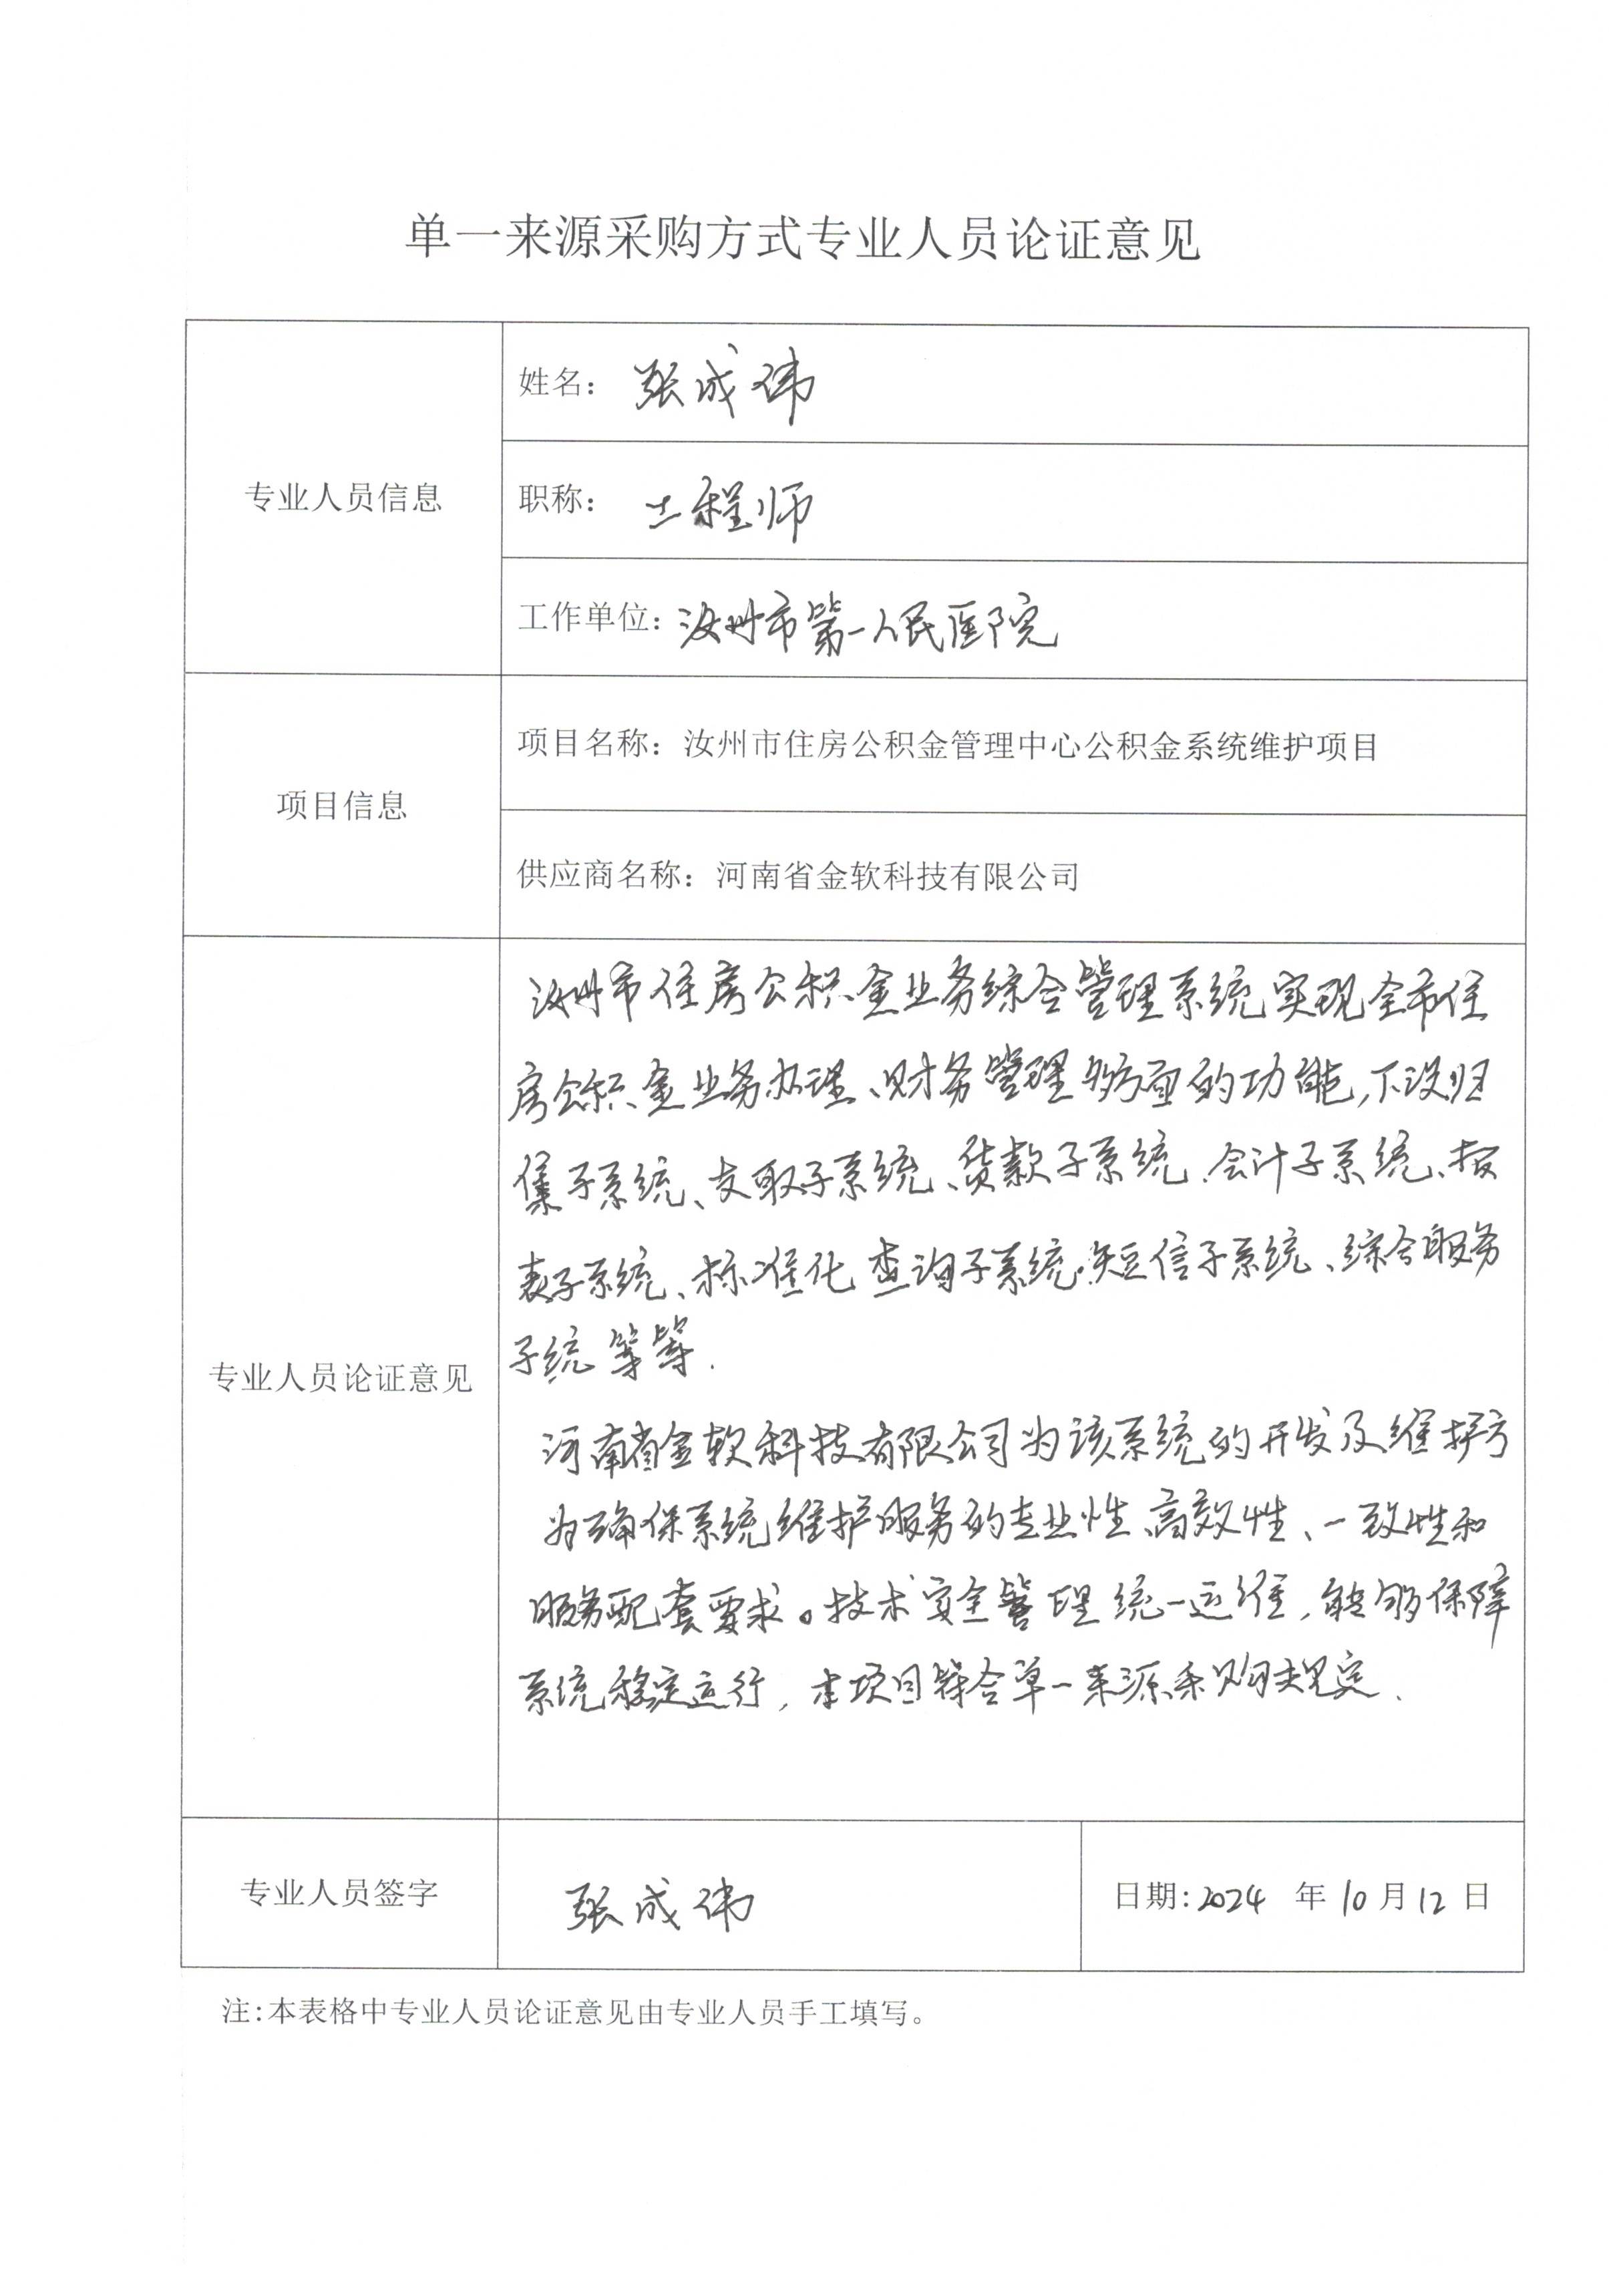 单一来源采购方式专业人员论证意见
专业人员信息
姓名：张成伟
职称：工程师
工作单位：汝州市第一人民医院
项目信息
项目名称：汝州市住房公积金管理中心公积金系统维护项目
供应商名称：河南省金软科技有限公司
专业人员论证意见
汝州市住房公积金业务综合管理系统实现全市住
房公积金业务办理、财务管理等方面的功能,下设归
集子系统、支取子系统、贷款子系统、会计子系统、报
表子系统、标准化查询子系统、短信子系统、综合服务
子统等等.
河南省金软科技有限公司为该系统的开发及维护方
为确保系统维护服务的专业性、高效性、一致性和
服务配套要求。技术安全管理统一运维,能够保障
系统稳定运行,本项目符合单一来源采购规定.
专业人员签字
张成伟
日期:2024 年10月12日
注:本表格中专业人员论证意见由专业人员手工填写。